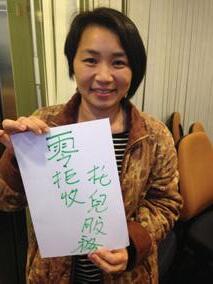 零拒收
托兒服務